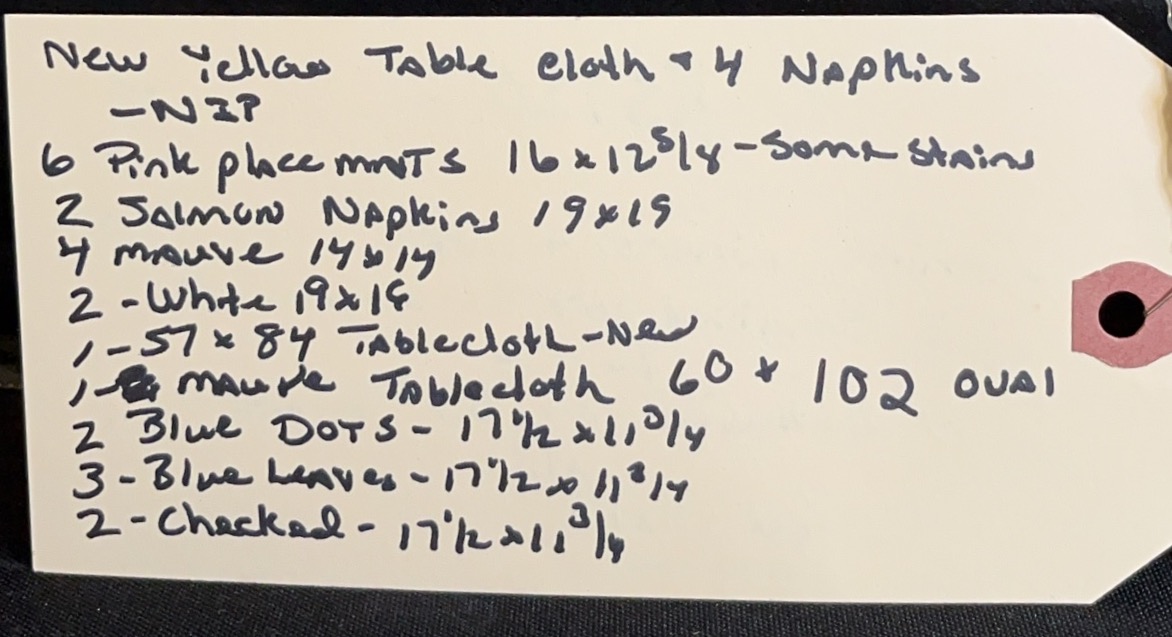 New Yellow Table cloth + 4 Napkins
- NIP
6 Pink placemats 16 x 12 5/8 - Some Stains
2 Salmon Napkins 19 x 19
4 mauve 14 x 14
2 - White 19 x 18
1 - 57 x 84 Tablecloth - New
1 - mauve Tablecloth 60 x 102 oval
2 Blue Dots - 17 1/2 x 11 3/4
3 - Blue Leaves - 17 1/2 x 11 3/4
2 - Checked - 17 1/2 x 11 3/4